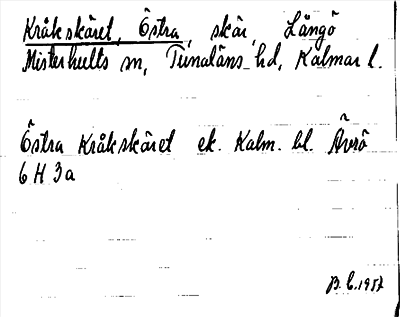 Kråkskäret, Östra, skär, Långö
Misterhults sn, Tunaläns hd, Kalmar l.
Östra Kråkskäret ek. Kalm. bl. Ävrö
6 H 3a
B. C. 1957